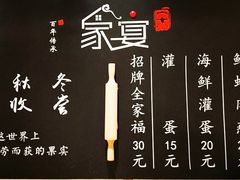 百年传承
家宴
秋收
冬尝
这世界上
劳而获的果实
招牌全家福30元
灌蛋15元
海鲜灌蛋20元